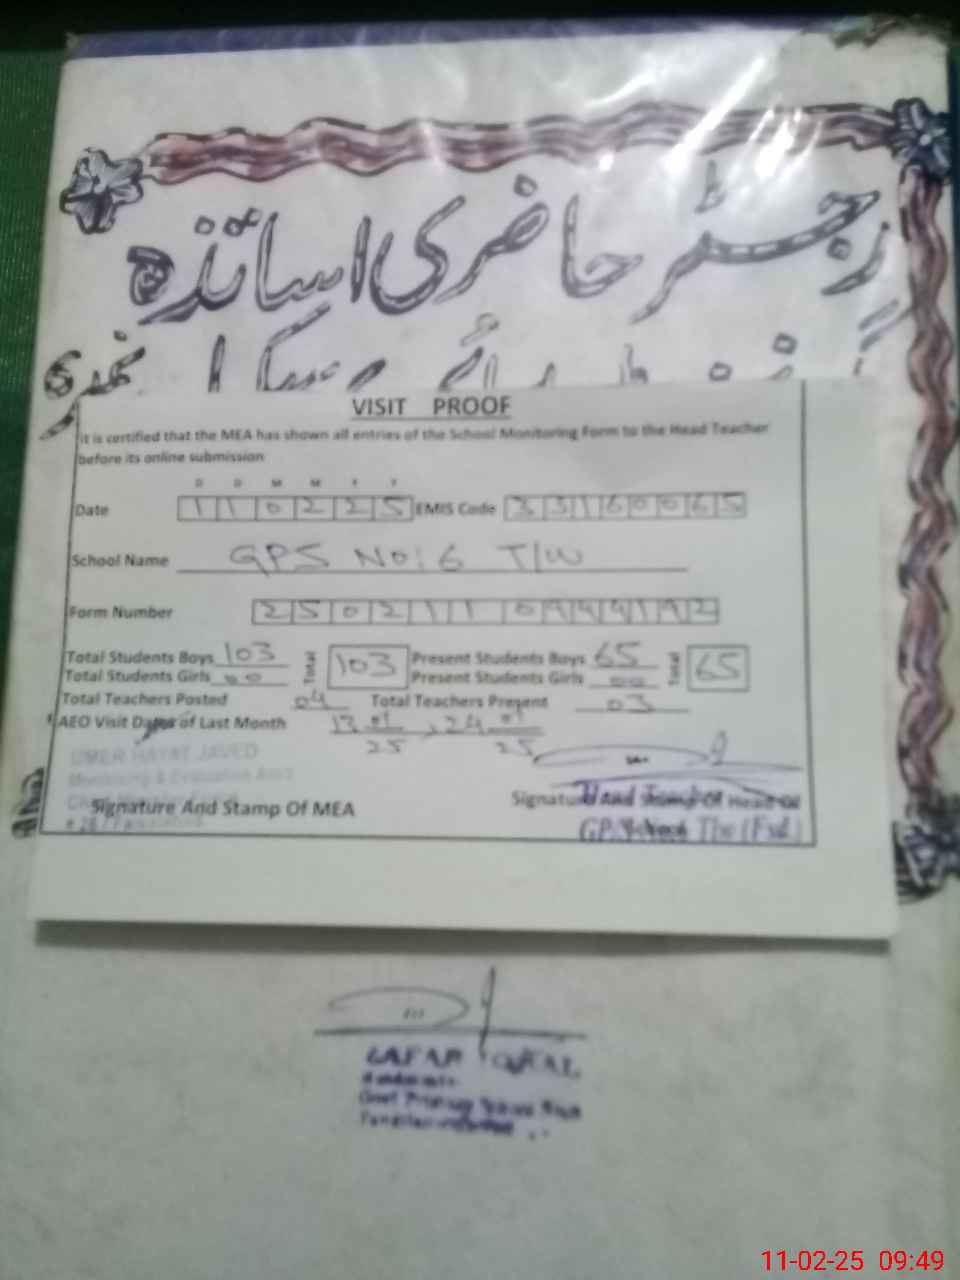 رجسٹر حاضری اساتذہ
VISIT PROOF
It is certified that the MEA has shown all entries of the School Monitoring Form to the Head Teacher
before its online submission
D D M M Y Y
Date 110225 EMIS Code 33160065
School Name GPS No: 6 T/W
Form Number 2502110944192
Total Students Boys 103 Total 103 Present Students Boys 65 Total 65
Total Students Girls 00 Present Students Girls 00
Total Teachers Posted 04 Total Teachers Present 03
AEO Visit Dates of Last Month 13 01/25, 24 01/25
UMER HAYAT JAVED
Monitoring & Evaluation
Signature And Stamp Of MEA Signature And Stamp Of Head Of
Head Teacher
School
ZAFAR IQBAL
Govt Primary School
11-02-25 09:49